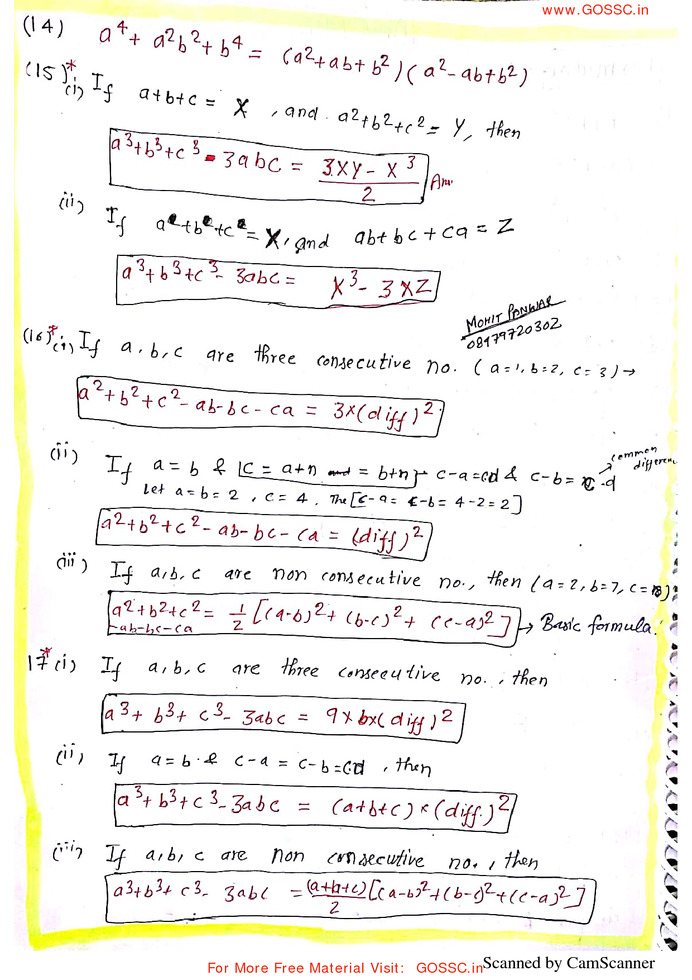 www.GOSSC.in
(14) a⁴ + a²b² + b⁴ = (a²+ab+b²)(a²-ab+b²)
(15)* (i) If a+b+c = X, and a²+b²+c² = Y, then
a³+b³+c³-3abc = (3XY - X³)/2 Ans
(ii) If a+b+c = X, and ab+bc+ca = Z
a³+b³+c³-3abc = X³-3XZ
MOHIT PANWAR
08979720302
(16)* (i) If a,b,c are three consecutive no. (a=1, b=2, c=3) →
a²+b²+c²-ab-bc-ca = 3×(diff)²
(ii) If a=b & c=a+n = b+n c-a=cd & c-b= c.d → common
Let a=b=2, c=4. The [c-a= c-b=4-2=2]
a²+b²+c²-ab-bc-ca = (diff)²
(iii) If a,b,c are non consecutive no., then (a=2, b=7, c=
a²+b²+c²-ab-bc-ca = 1/2 [(a-b)²+(b-c)²+(c-a)²] → Basic formula.
17* (i) If a,b,c are three consecutive no., then
a³+b³+c³-3abc = 9×b×(diff)²
(ii) If a=b & c-a = c-b=cd, then
a³+b³+c³-3abc = (a+b+c)×(diff.)²
(iii) If a,b,c are non consecutive no., then
a³+b³+c³-3abc = (a+b+c)/2 [(a-b)²+(b-c)²+(c-a)²]
For More Free Material Visit: GOSSC.in
Scanned by CamScanner